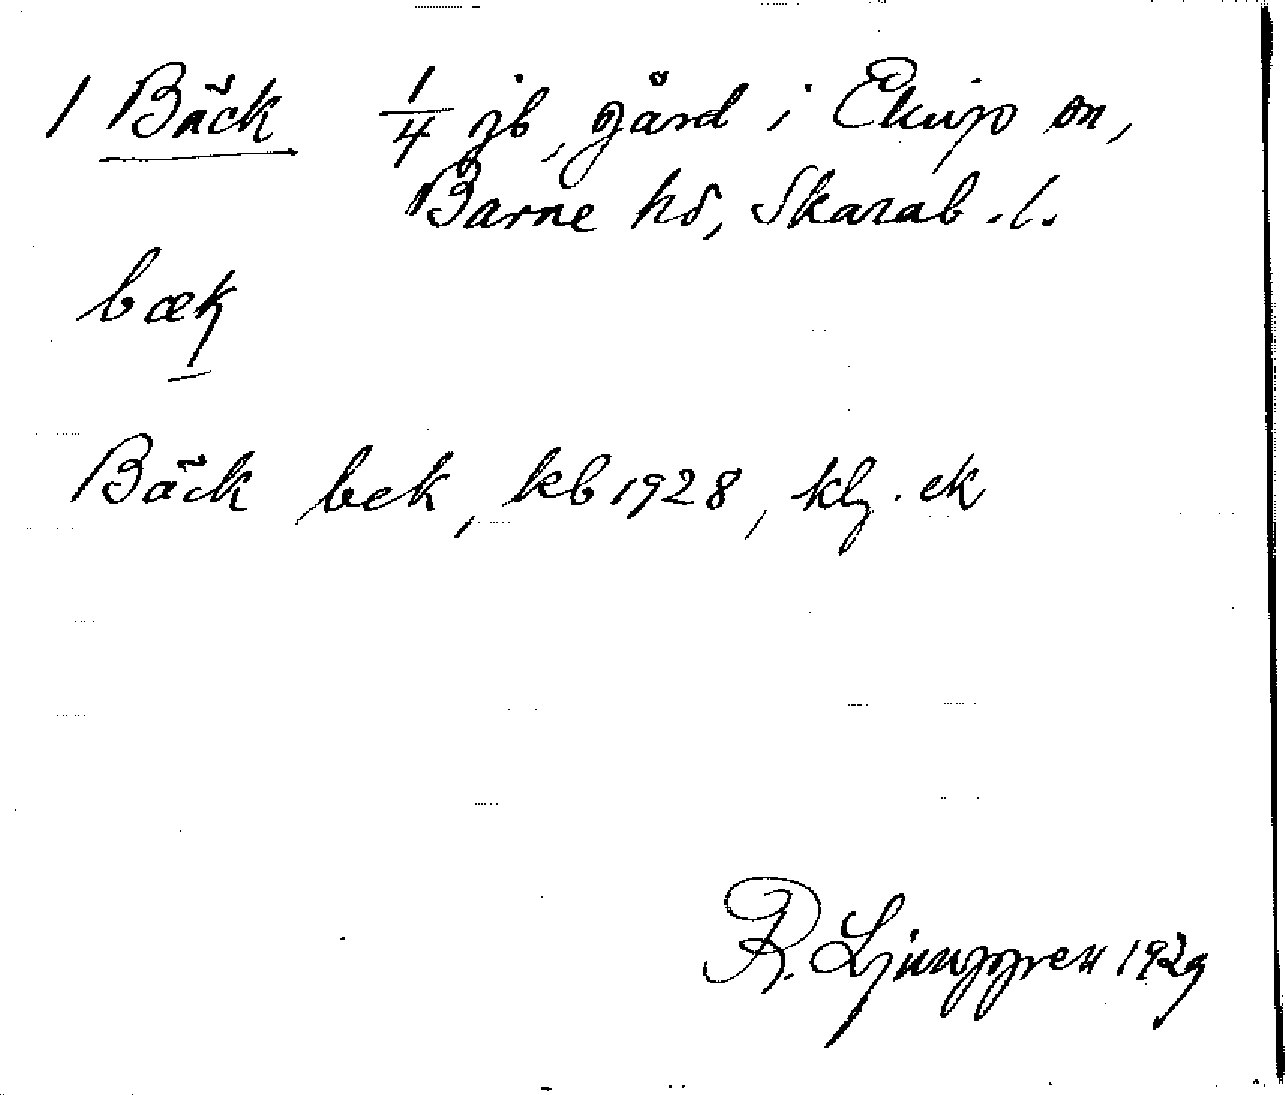 1 Bäck 1/4 jb, gård i Ekinjo sn,
Barne hd, Skarab. l.
bæk
Bäck bek, kb 1928, klj. ek
R. Ljunggren 1929